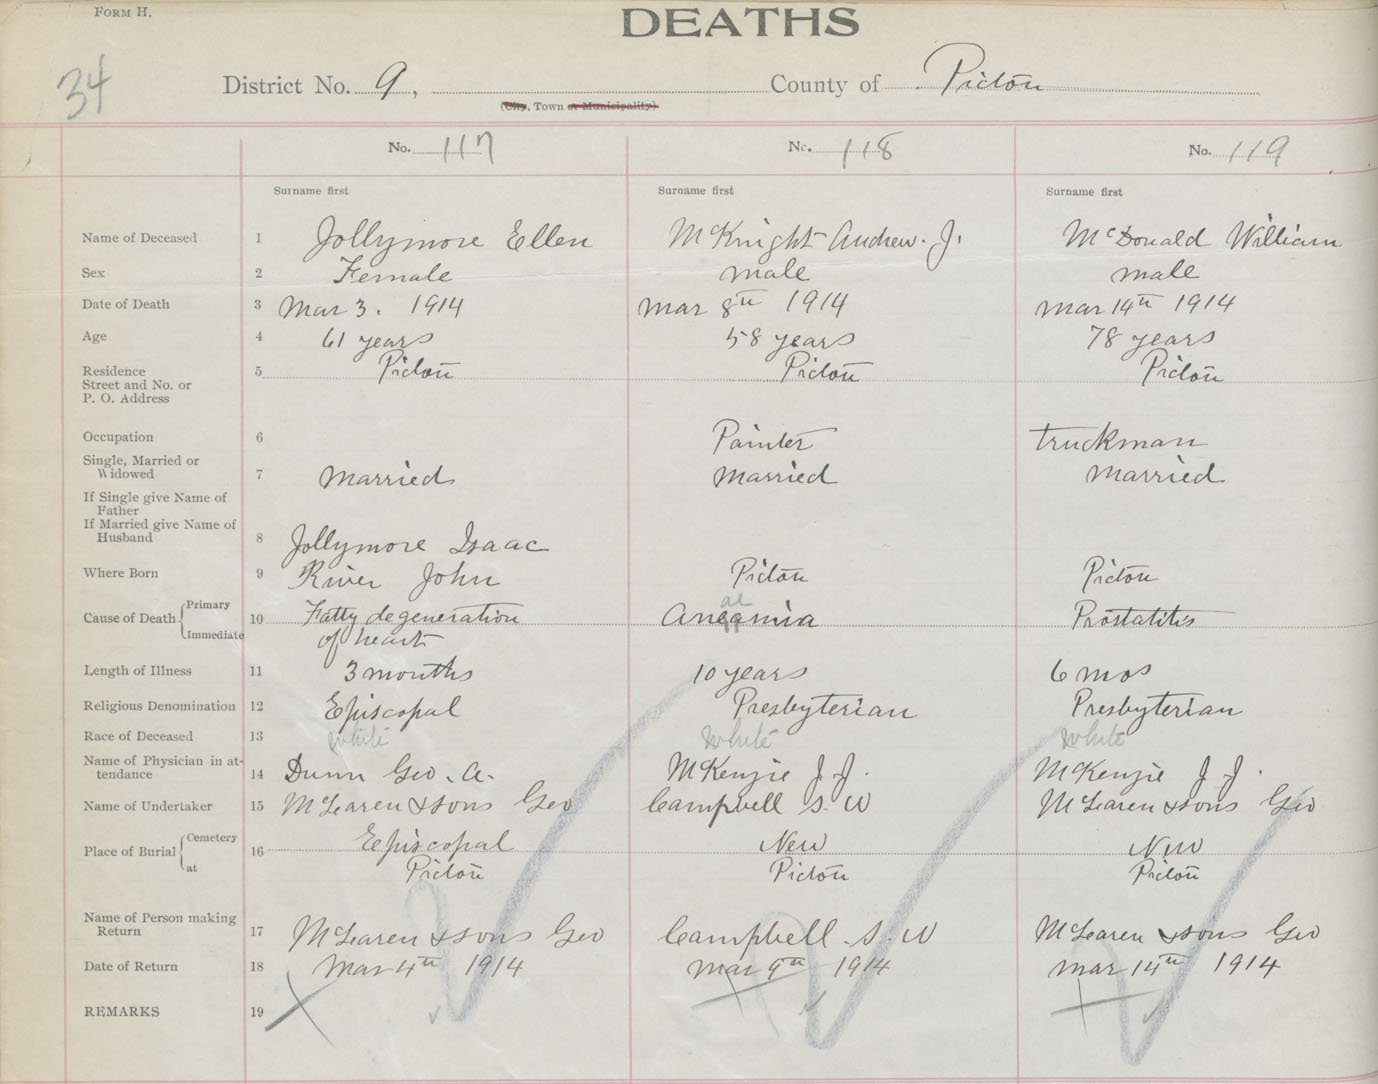 FORM H.
DEATHS
34
District No. 9, County of Pictou
(City, Town or Municipality)
No. 117 No. 118 No. 119
Surname first Surname first Surname first
Name of Deceased 1 Jollymore Ellen McKnight Andrew. J. McDonald William
Sex 2 Female male male
Date of Death 3 Mar 3. 1914 Mar 8th 1914 Mar 14th 1914
Age 4 61 years 58 years 78 years
Residence 5 Pictou Pictou Pictou
Street and No. or
P. O. Address
Occupation 6 Painter truckman
Single, Married or
Widowed 7 Married Married Married
If Single give Name of
Father
If Married give Name of
Husband 8 Jollymore Isaac
Where Born 9 River John Pictou Pictou
Cause of Death Primary 10 Fatty degeneration Aneamia ae Prostatitis
Immediate of heart
Length of Illness 11 3 months 10 years 6 mos
Religious Denomination 12 Episcopal Presbyterian Presbyterian
Race of Deceased 13 White White White
Name of Physician in at-
tendance 14 Dunn Geo. A. McKenzie J. J. McKenzie J. J.
Name of Undertaker 15 McLaren & sons Geo Campbell S. W McLaren & sons Geo
Place of Burial Cemetery 16 Episcopal New New
at Pictou Pictou Pictou
Name of Person making
Return 17 McLaren & sons Geo Campbell S. W McLaren & sons Geo
Date of Return 18 Mar 4th 1914 Mar 9th 1914 Mar 14th 1914
REMARKS 19